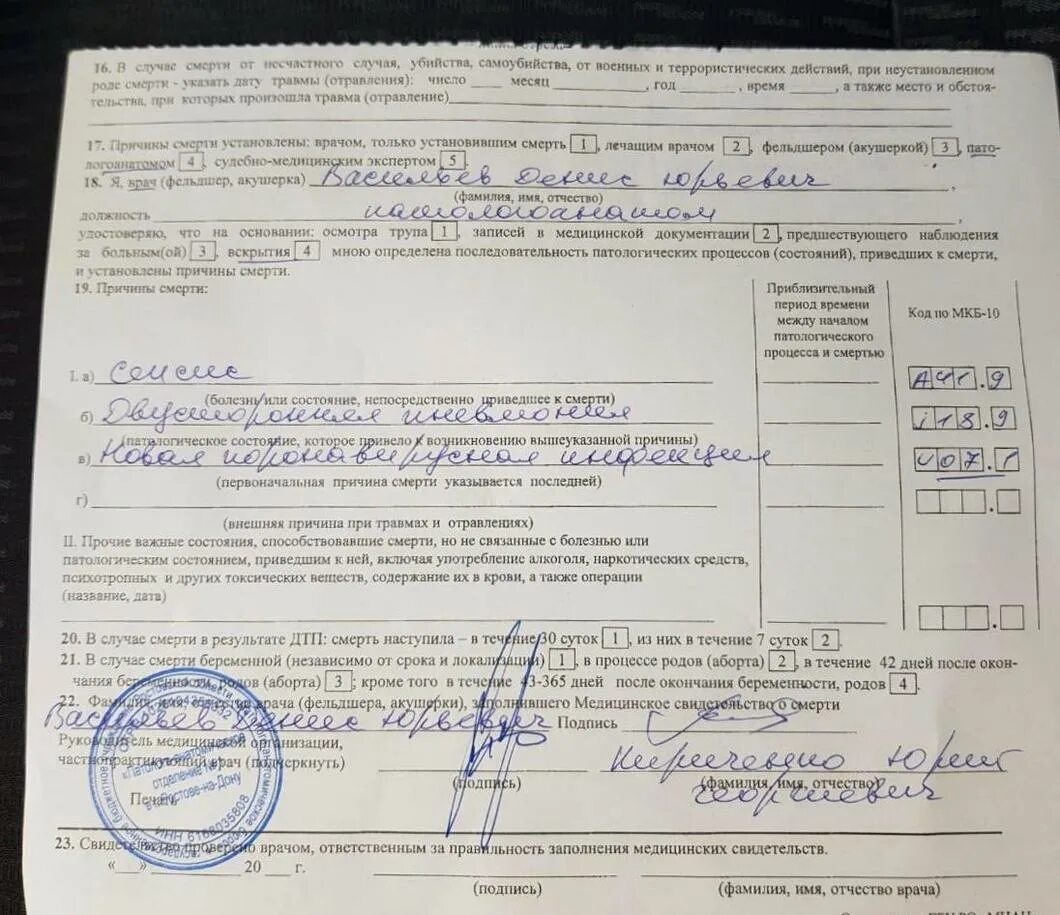 16. В случае смерти от несчастного случая, убийства, самоубийства, от военных и террористических действий, при неустановленном
роде смерти - указать дату травмы (отравления): число ____ месяц __________, год ______, время _____, а также место и обстоя-
тельства, при которых произошла травма (отравление)
17. Причины смерти установлены: врачом, только установившим смерть 1, лечащим врачом 2, фельдшером (акушеркой) 3, пато-
логоанатомом 4, судебно-медицинским экспертом 5.
18. Я, врач (фельдшер, акушерка) Васильев Денис Юрьевич,
(фамилия, имя, отчество)
должность патологоанатом,
удостоверяю, что на основании: осмотра трупа 1, записей в медицинской документации 2, предшествующего наблюдения
за больным(ой) 3, вскрытия 4 мною определена последовательность патологических процессов (состояний), приведших к смерти,
и установлены причины смерти.
19. Причины смерти:
Приблизительный
период времени
между началом
патологического
процесса и смертью
Код по МКБ-10
I. а) Сепсис A41.9
(болезнь или состояние, непосредственно приведшее к смерти)
б) Двусторонняя пневмония i18.9
(патологическое состояние, которое привело к возникновению вышеуказанной причины)
в) Новая коронавирусная инфекция U07.1
(первоначальная причина смерти указывается последней)
г)
(внешняя причина при травмах и отравлениях)
II. Прочие важные состояния, способствовавшие смерти, но не связанные с болезнью или
патологическим состоянием, приведшим к ней, включая употребление алкоголя, наркотических средств,
психотропных и других токсических веществ, содержание их в крови, а также операции
(название, дата)
20. В случае смерти в результате ДТП: смерть наступила – в течение 30 суток 1, из них в течение 7 суток 2.
21. В случае смерти беременной (независимо от срока и локализации) 1, в процессе родов (аборта) 2, в течение 42 дней после окон-
чания беременности, родов (аборта) 3; кроме того в течение 43-365 дней после окончания беременности, родов 4.
22. Фамилия, имя, отчество врача (фельдшера, акушерки), заполнившего Медицинское свидетельство о смерти
Васильев Денис Юрьевич Подпись
Руководитель медицинской организации,
частнопрактикующий врач (подчеркнуть)
Кириченко Юрий
(подпись) (фамилия, имя, отчество)
Георгиевич
Печать
«Патолого-анатомическое
отделение
в г. Ростове-на-Дону
ИНН 6168035808
23. Свидетельство проверено врачом, ответственным за правильность заполнения медицинских свидетельств.
«___» __________ 20 ___ г.
(подпись) (фамилия, имя, отчество врача)